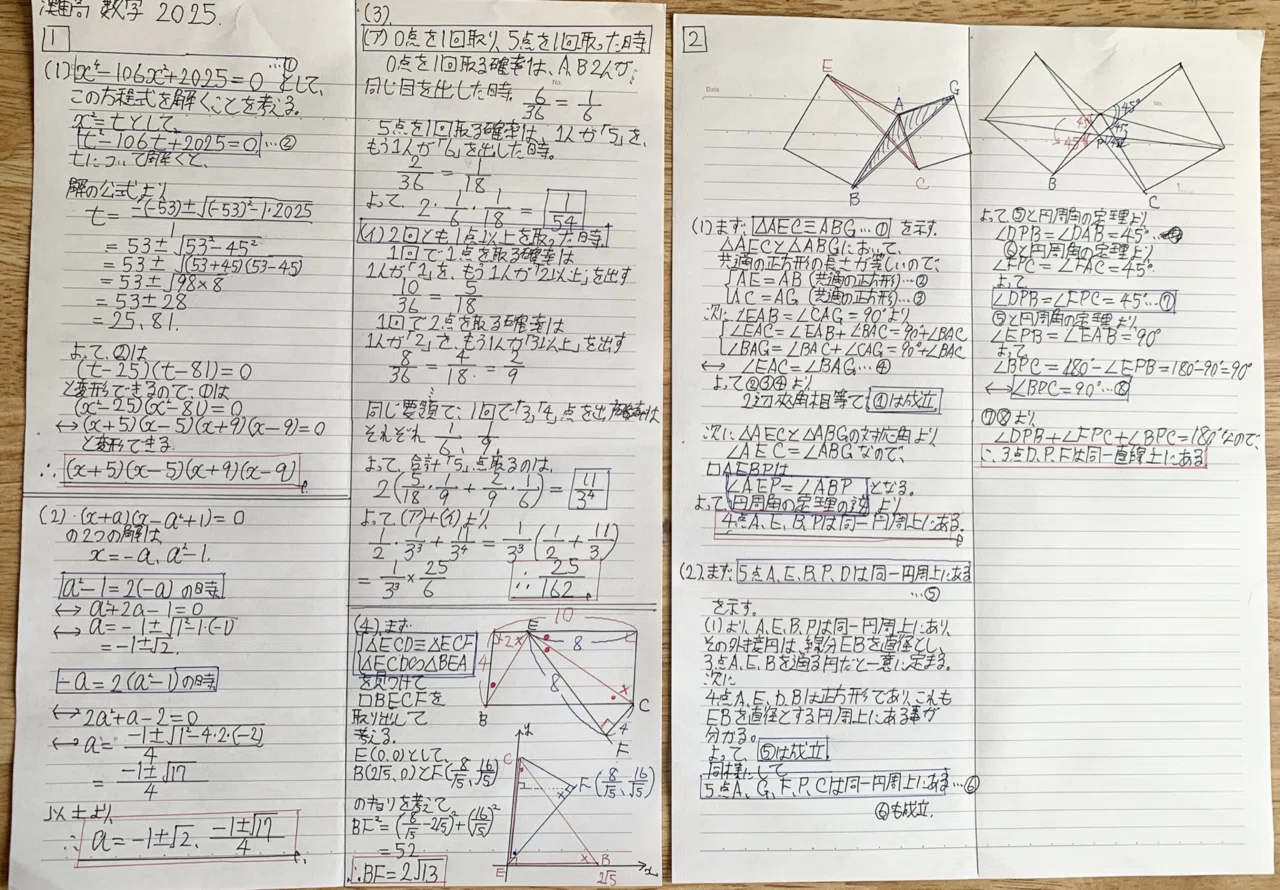 灘高 数学 2025.
1
(1) x⁴-106x²+2025=0 …① として、
この方程式を解くことを考える。
x²=tとして、
t²-106t+2025=0 …②
tについて解くと、
解の公式より
t = -(-53)±√(-53)²-1・2025
1
= 53±√53²-45²
= 53±√(53+45)(53-45)
= 53±√98×8
= 53±28
= 25, 81.
よって、②は
(t-25)(t-81)=0
と変形できるので、①は
(x²-25)(x²-81)=0
↔(x+5)(x-5)(x+9)(x-9)=0
と変形できる
∴ (x+5)(x-5)(x+9)(x-9)
(2)・(x+a)(x-a²+1)=0
の2つの解は
x=-a, a²-1.
a²-1=2(-a) の時
↔ a²+2a-1=0
↔ a=-1±√1²-1・(-1)
=-1±√2
-a=2(a²-1)の時
↔ 2a²+a-2=0
↔ a= -1±√1²-4・2・(-2)
4
= -1±√17
4
以上より
∴ a=-1±√2, -1±√17
4
(3).
(ア) 0点を1回取り、5点を1回取った時
0点を1回取る確率は、A,B2人が
同じ目を出した時 6/36 = 1/6
5点を1回取る確率は、1人が「5」を、
もう1人が「6」を出した時。
2/36 = 1/18
よって、2・1/6・1/18 = 1/54
(イ) 2回とも1点以上を取った時
1回で1点を取る確率は
1人が「1」を、もう1人が「2以上」を出す
10/36 = 5/18
1回で2点を取る確率は
1人が「2」を、もう1人が「3以上」を出す
8/36 = 4/18 = 2/9
同じ要領で、1回で「3」「4」点を出す確率は
それぞれ 1/6, 1/9
よって、合計「5」点取るのは、
2(5/18・1/9 + 2/9・1/6) = 11/3⁴
よって、(ア)+(イ)より
1/2・1/3³ + 11/3⁴ = 1/3³(1/2 + 11/3)
= 1/3³ × 25/6 ∴ 25/162
(4) まず
△ECD≡△ECF
△ECD∽△BEA
を見つけて
□BECFを
取り出して
考える.
E(0,0)として、
B(2√5, 0)とF(8/√5, 16/√5)
のキョリを考えて
BF²=(8/√5-2√5)²+(16/√5)²
=52
∴BF=2√13
10
E
×2×
8
4
8
×
B
C
4
F
y
C
F(8/√5, 16/√5)
×
E
B
x
2√5
2
E
A
G
B
C
(1)まず △AEC≡ABG…① を示す.
△AECと△ABGにおいて、
共通の正方形の長さが等しいので、
AE=AB (共通の正方形)…②
AC=AG (共通の正方形)…③
次に ∠EAB=∠CAG=90°より
∠EAC=∠EAB+∠BAC=90°+∠BAC
∠BAG=∠BAC+∠CAG=90°+∠BAC
↔ ∠EAC=∠BAG…④
よって②③④より
2辺夾角相等で、①は成立
次に △AECと△ABGの対応角より
∠AEC=∠ABGなので、
□AEBPは
∠AEP=∠ABP となる.
よって、円周角の定理の逆より
4点A, E, B, Pは同一円周上にある.
(2).まず 5点A, E, B, P, Dは同一円周上にある
…⑤
を示す。
(1)より、A, E, B, Pは同一円周上にあり、
その外接円は、線分EBを直径とし、
3点A, E, Bを通る円だと一意に定まる。
次に
4点A, E, D, Bは正方形であり、これも
EBを直径とする円周上にある事が
分かる。
よって、⑤は成立
同様にして
5点A, G, F, P, Cは同一円周上にある…⑥
⑥も成立.
45°
45°
45
P
B
C
よって⑤と円周角の定理より
∠DPB=∠DAB=45°
⑥と円周角の定理より
∠FPC=∠FAC=45°
よって
∠DPB=∠FPC=45°…⑦
⑤と円周角の定理より
∠EPB=∠EAB=90°
よって
∠BPC=180°-∠EPB=180°-90°=90°
↔ ∠BPC=90°…⑧
⑦⑧より
∠DPB+∠FPC+∠BPC=180°なので、
∴3点D, P, Fは同一直線上にある